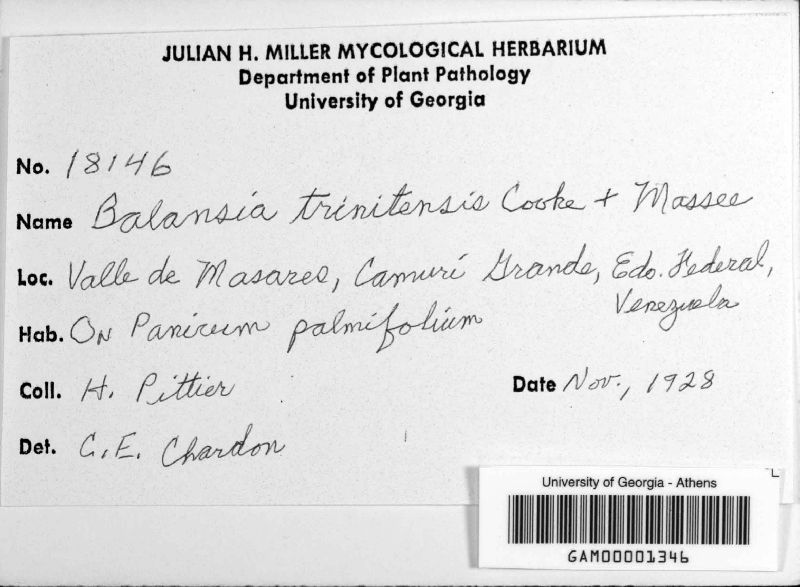 JULIAN H. MILLER MYCOLOGICAL HERBARIUM
Department of Plant Pathology
University of Georgia
No. 18146
Name Balansia trinitensis Cooke + Massee
Loc. Valle de Masares, Camurí Grande, Edo. Federal,
Venezuela
Hab. On Panicum palmifolium
Coll. H. Pittier
Date Nov., 1928
Det. C.E. Chardon
University of Georgia - Athens
GAM00001346